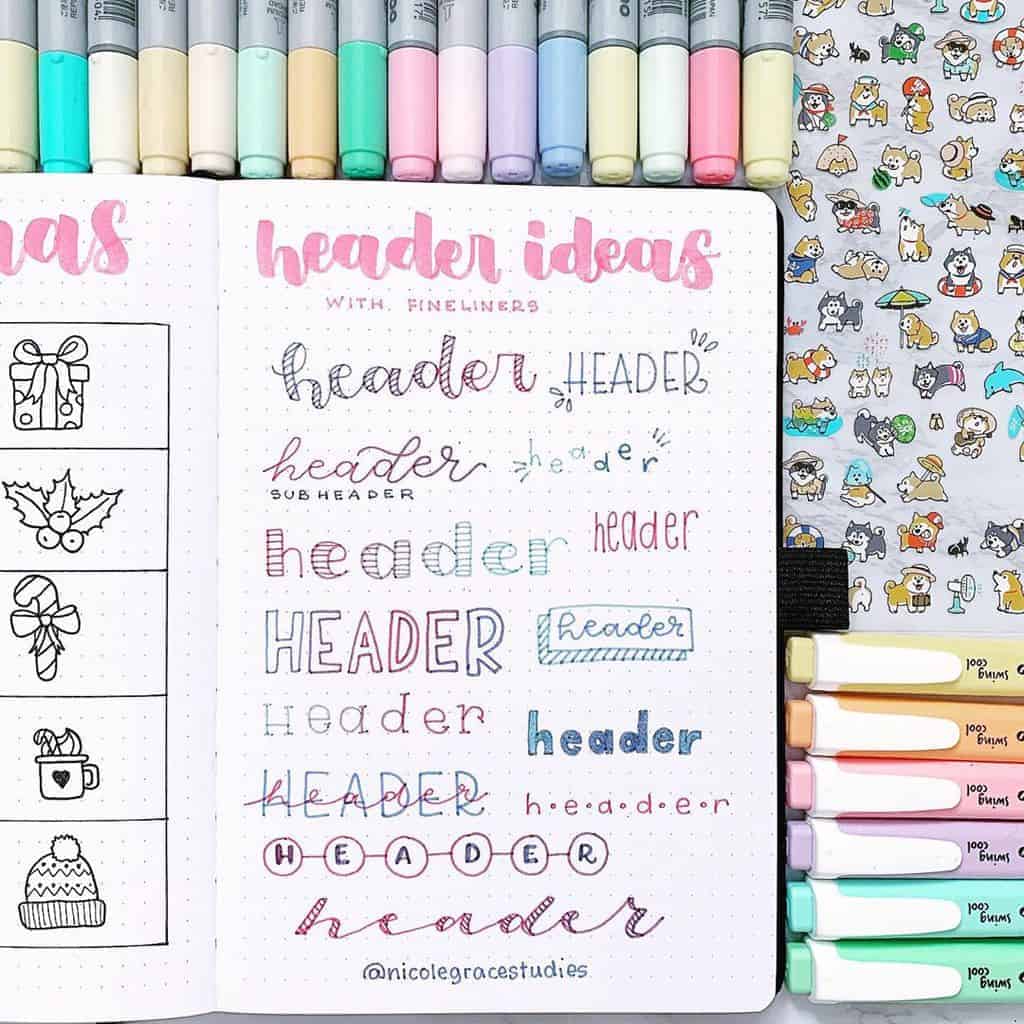 header ideas
WITH FINELINERS
header HEADER
header header
SUBHEADER
header header
HEADER header
Header header
HEADER header h.e.a.d.e.r
HEADER
header
@nicolegracestudies
swing cool
swing cool
swing cool
swing cool
swing cool
swing cool